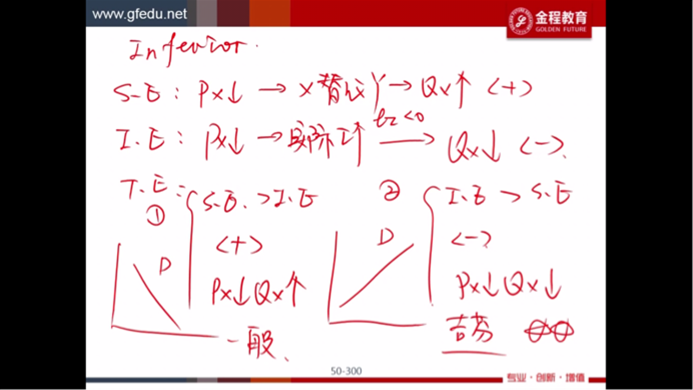 www.gfedu.net
金程教育
GOLDEN FUTURE
Inferior.
S.E: Px↓ → X替代Y → Qx↑ <+>
I.E: Px↓ → 实际I↑ → Qx↓ <->
T.E:
① S.E. > I.E
<+>
Px↓Qx↑
D
一般.
② I.E > S.E
<->
Px↓Qx↓
D
吉芬
50-300
专业·创新·增值